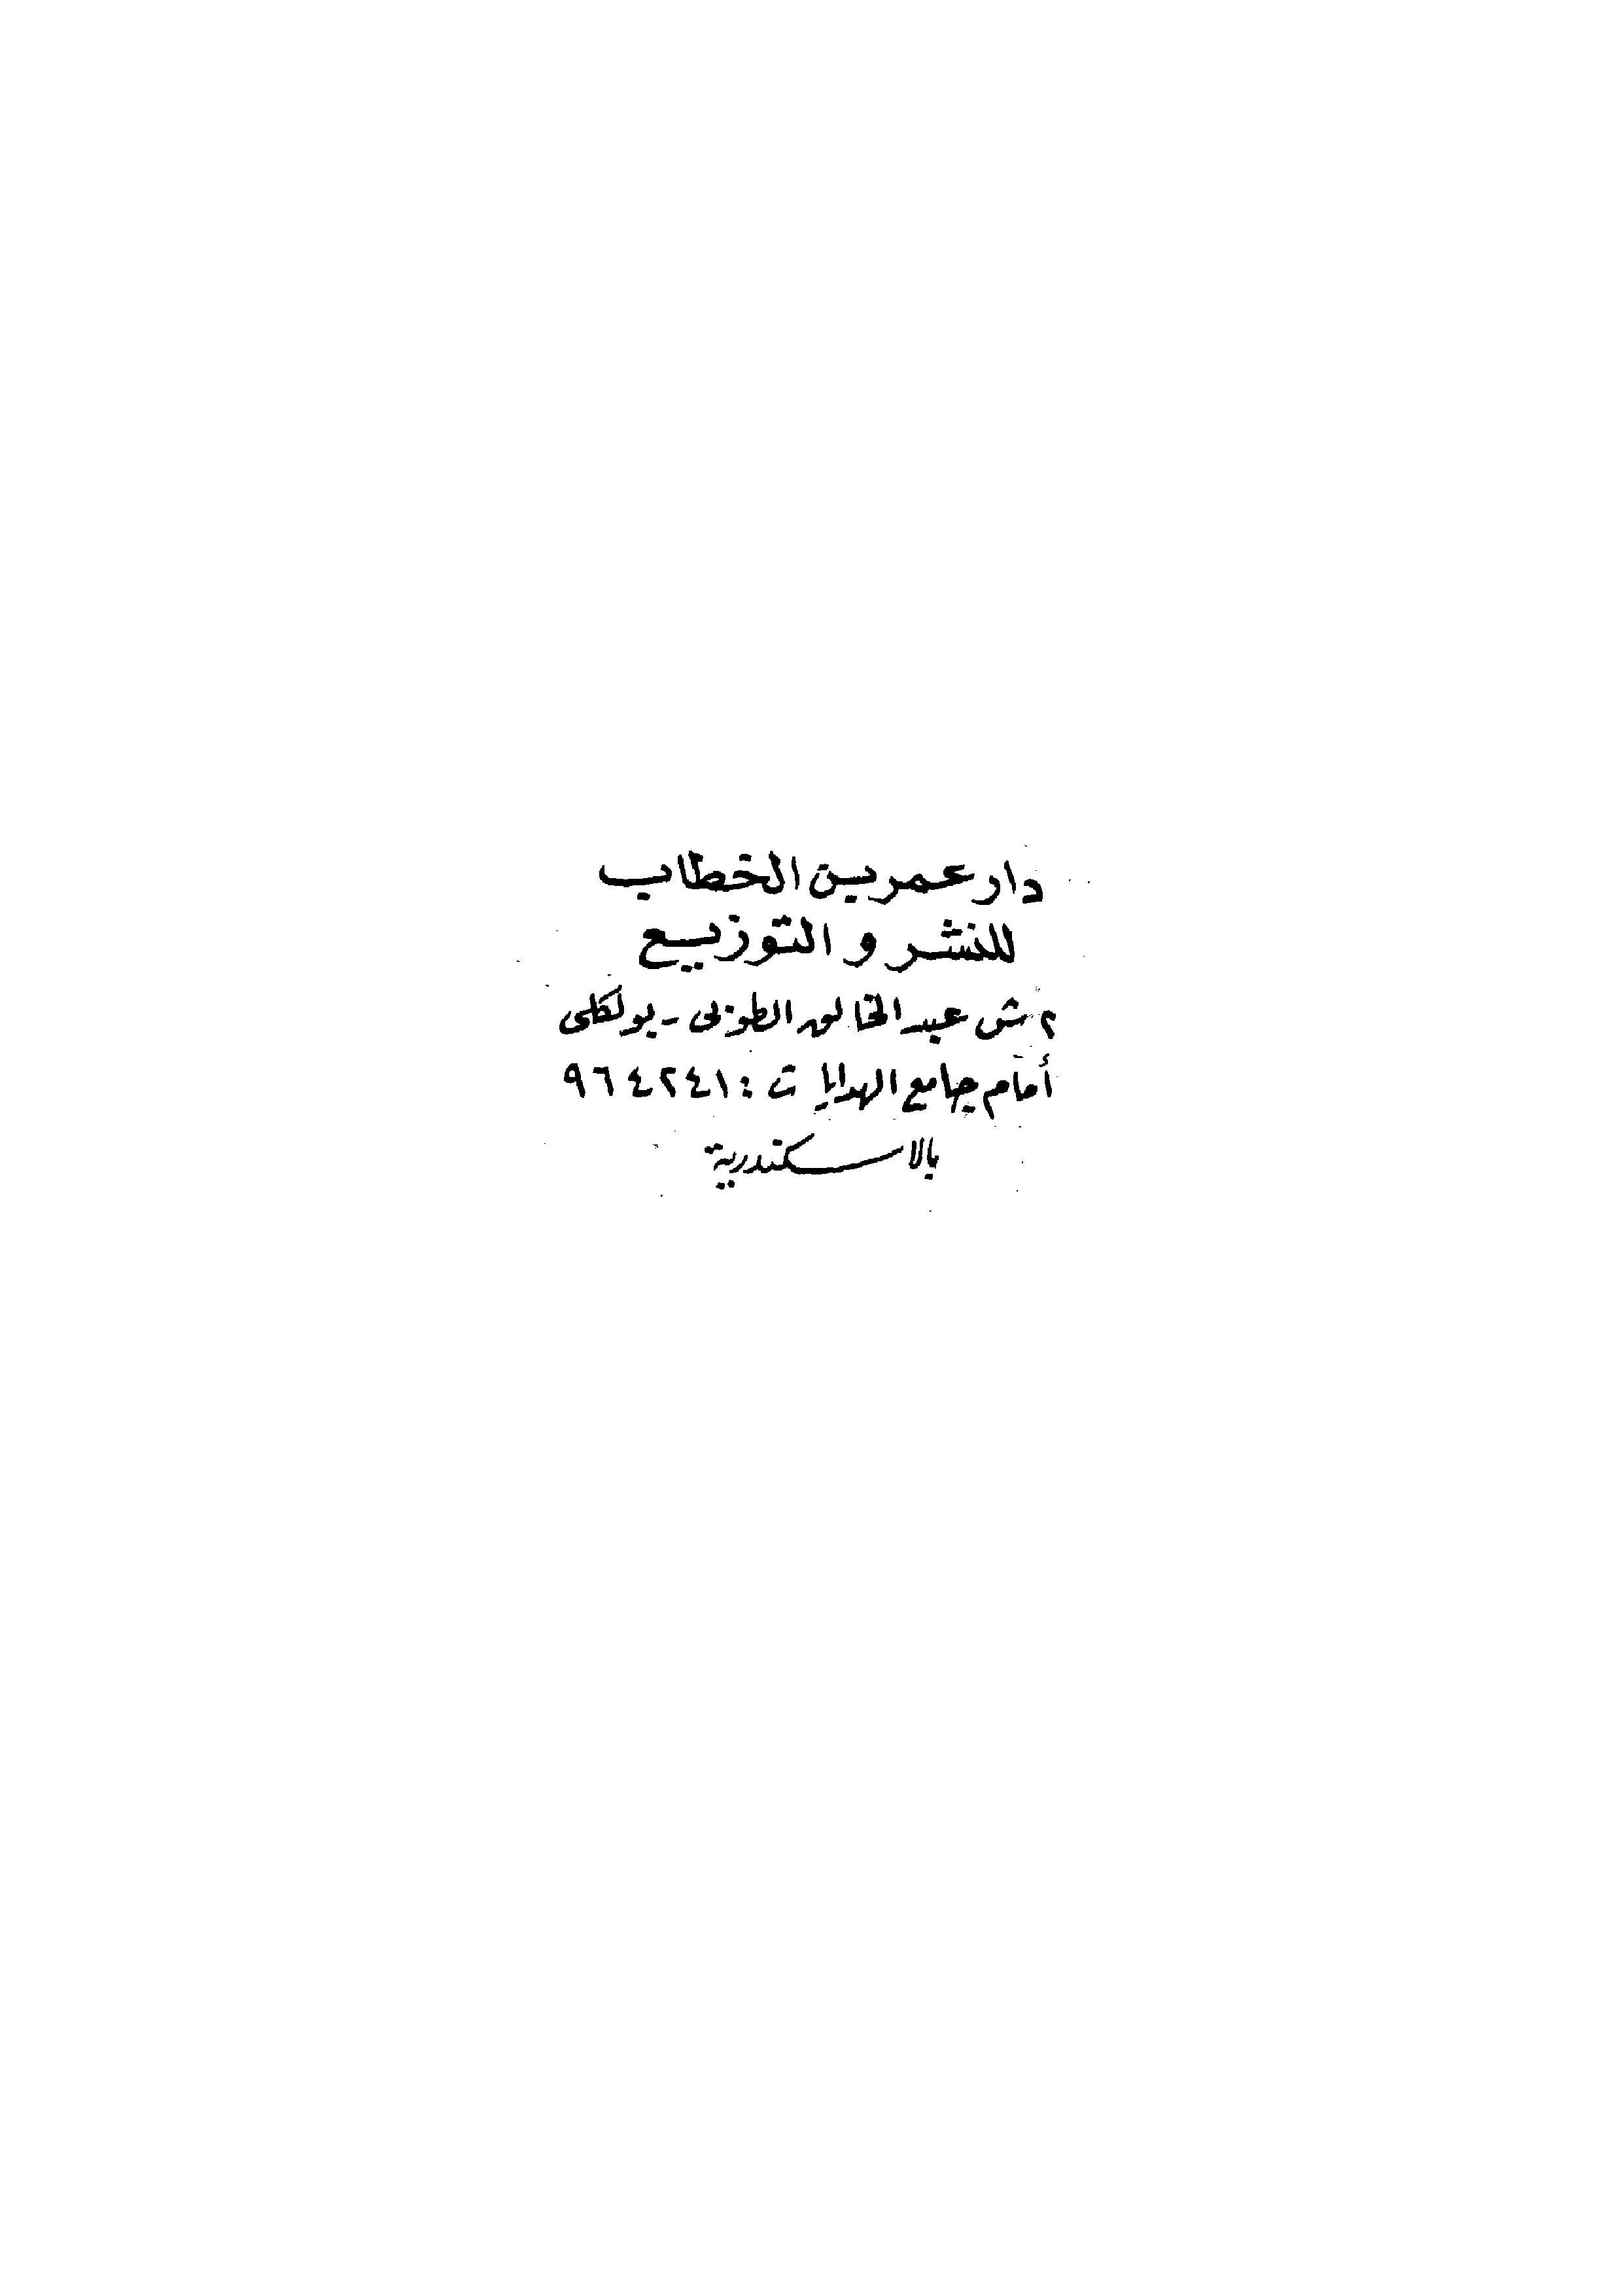 دار عمر بن الخطاب
للنشر والتوزيع
٢ ش عبد الخالق الطوبى - بولكلى
أمام جامع الهدايا ت : ٩٦٤٢٤١
بالاسكندرية